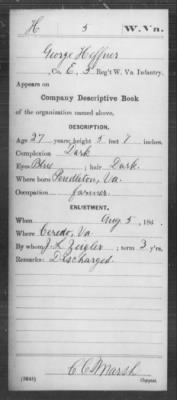 H 5 W. Va.
George Heffner
, Co. E, 5 Reg't W. Va. Infantry.
Appears on
Company Descriptive Book
of the organization named above.
DESCRIPTION.
Age 27 years; height 5 feet 7 inches.
Complexion Dark
Eyes Blue; hair Dark.
Where born Pendleton, Va.
Occupation farmer.
ENLISTMENT.
When Aug 5, 186 .
Where Ceredo, Va.
By whom J. L. Zeigler; term 3 y'rs.
Remarks: Discharged.
C. C. Marsh
Copyist.